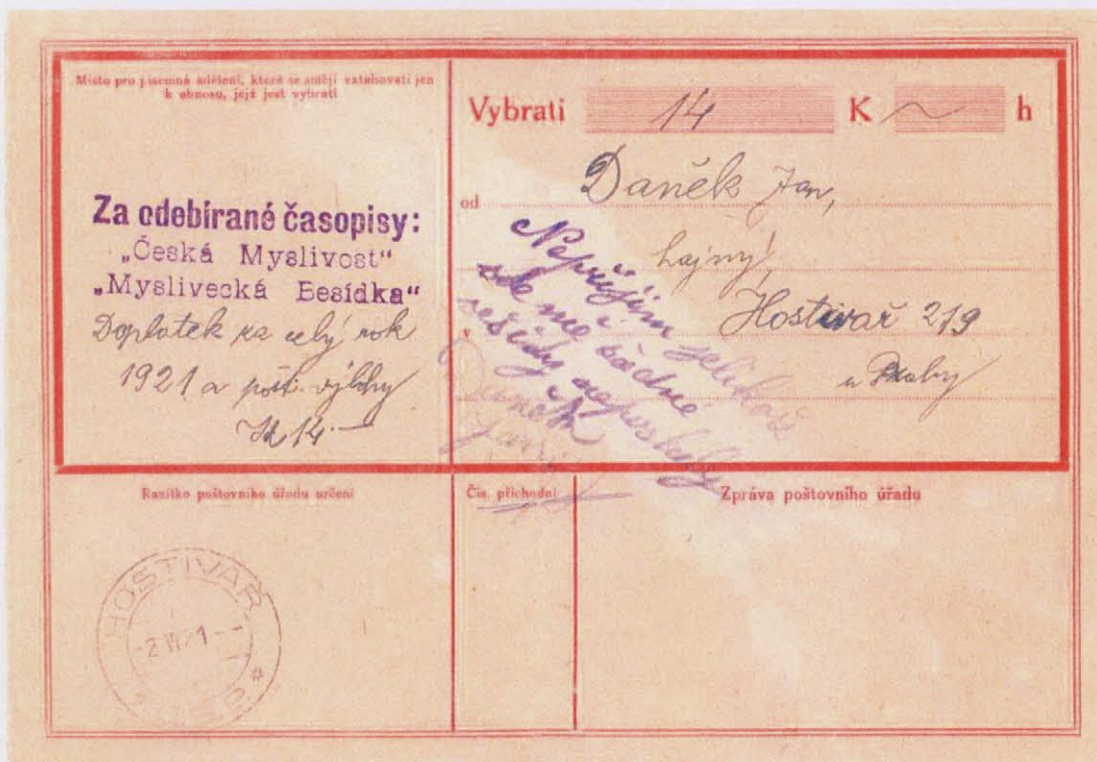 Místo pro písemná sdělení, která se smějí vztahovati jen
k obnosu, jejž jest vybrati
Za odebírané časopisy:
„Česká Myslivost“
„Myslivecká Besídka“
Doplatek za celý rok
1921 a pošt. výlohy
14.—
Vybrati 14 K ~ h
od Daněk Jan,
hajný,
v Hostivař 219
u Prahy
Nepřijím
žádné
Daněk
Jan
Razítko poštovního úřadu určení
Čís. příchodní
Zpráva poštovního úřadu
HOSTIVAŘ